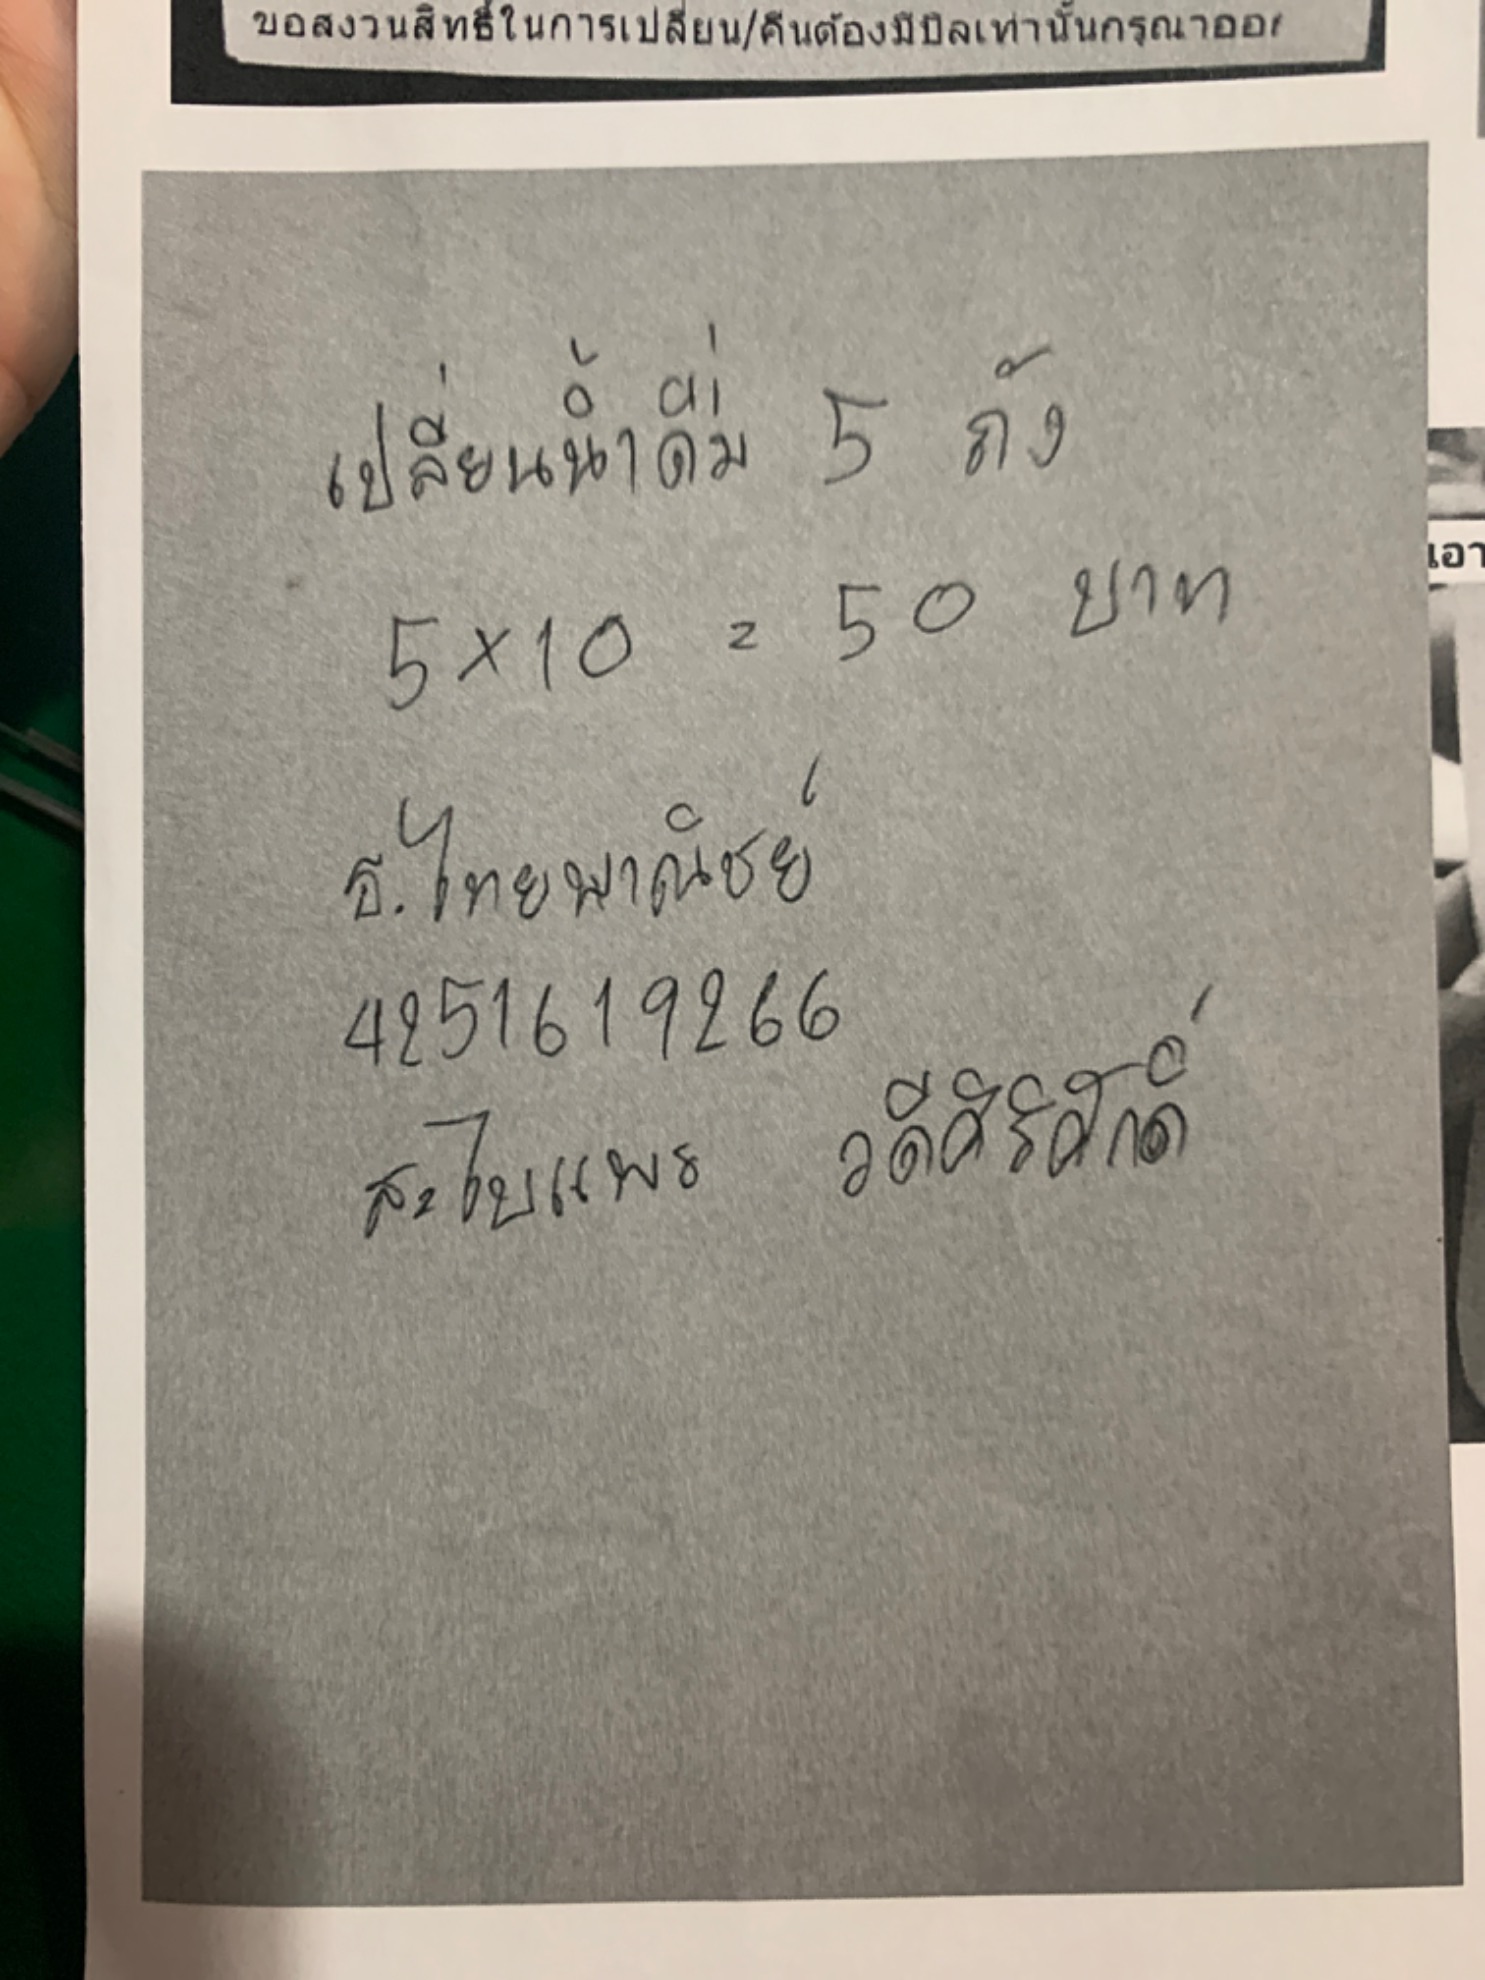 ขอสงวนสิทธิ์ในการเปลี่ยน/คืนต้องมีบิลเท่านั้นกรุณาออก
เปลี่ยนน้ำดื่ม 5 ถัง
เอา
5×10 = 50 บาท
ธ.ไทยพาณิชย์
4251619266
สะไบแพร วดีศิริศักดิ์